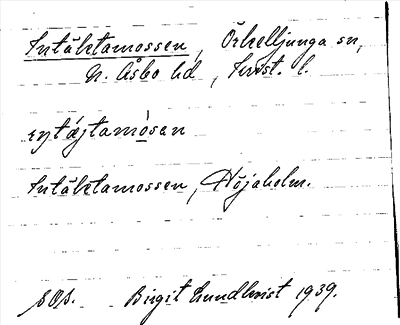 Intäktamossen, Örkelljunga sn,
N. Åsbo hd, Krist. l.
Intäktamossen, Höjaholm.
SOA. Birgit Lundkvist 1939.